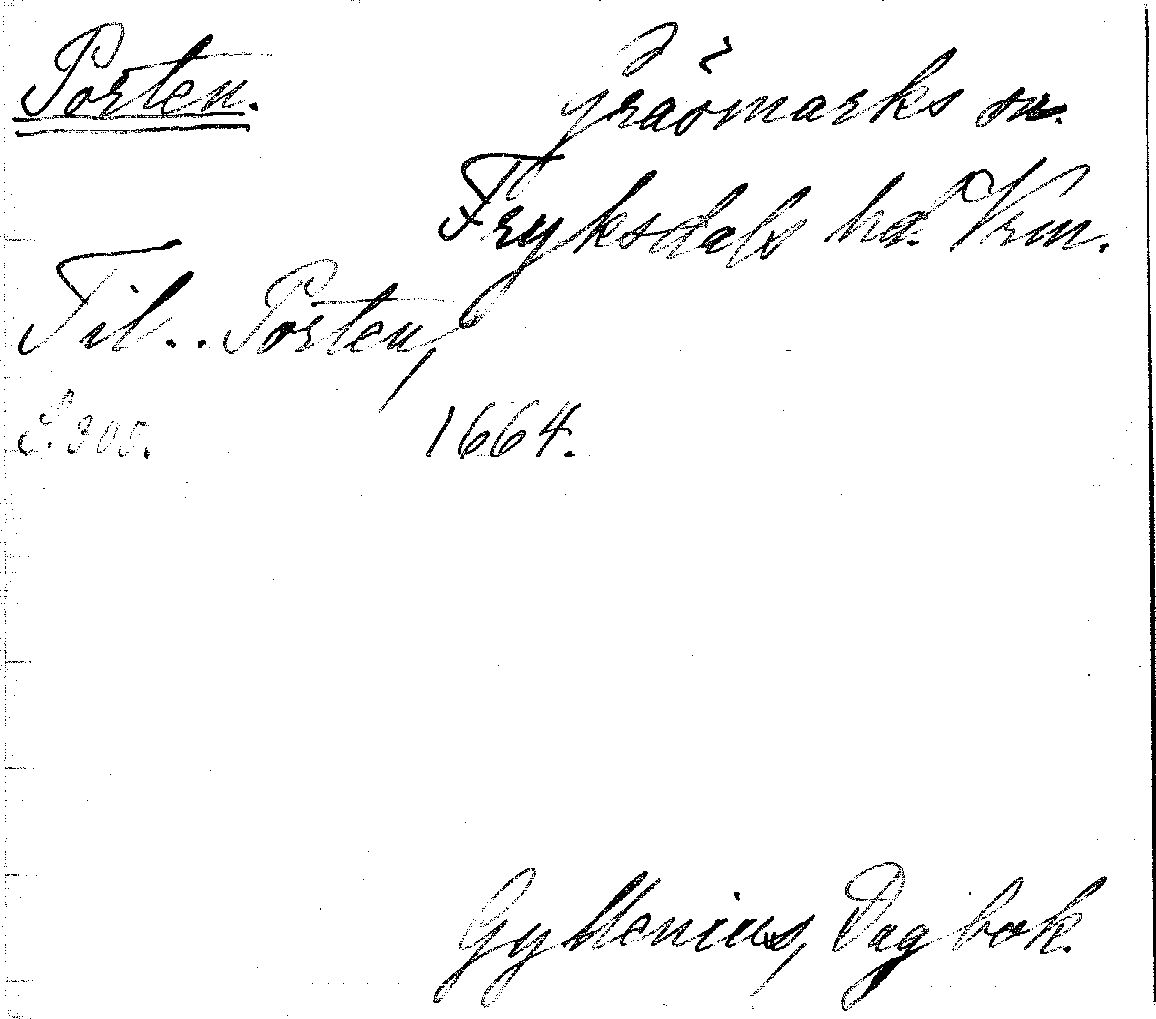 Porten.
Gräsmarks sn.
Fryksdals hd. Vrm.
Til.. Porten,
S. 300. 1664.
Gyllenius, Dagbok.